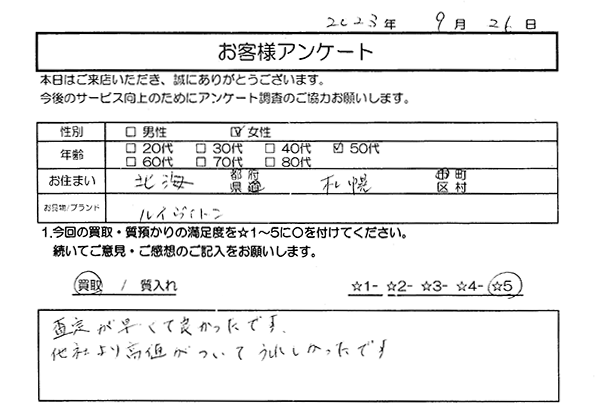 2023年 9月 26日
お客様アンケート
本日はご来店いただき、誠にありがとうございます。
今後のサービス向上のためにアンケート調査のご協力お願いします。
性別 □ 男性 ☑ 女性
年齢 □ 20代 □ 30代 □ 40代 ☑ 50代
□ 60代 □ 70代 □ 80代
お住まい 北海 都府県道 札幌 市町区村
お品物/ブランド ルイヴィトン
1.今回の買取・質預かりの満足度を☆1〜5に○を付けてください。
続いてご意見・ご感想のご記入をお願いします。
買取 / 質入れ ☆1- ☆2- ☆3- ☆4- ☆5
査定が早くて良かったです.
他社より高値がついてうれしかったです